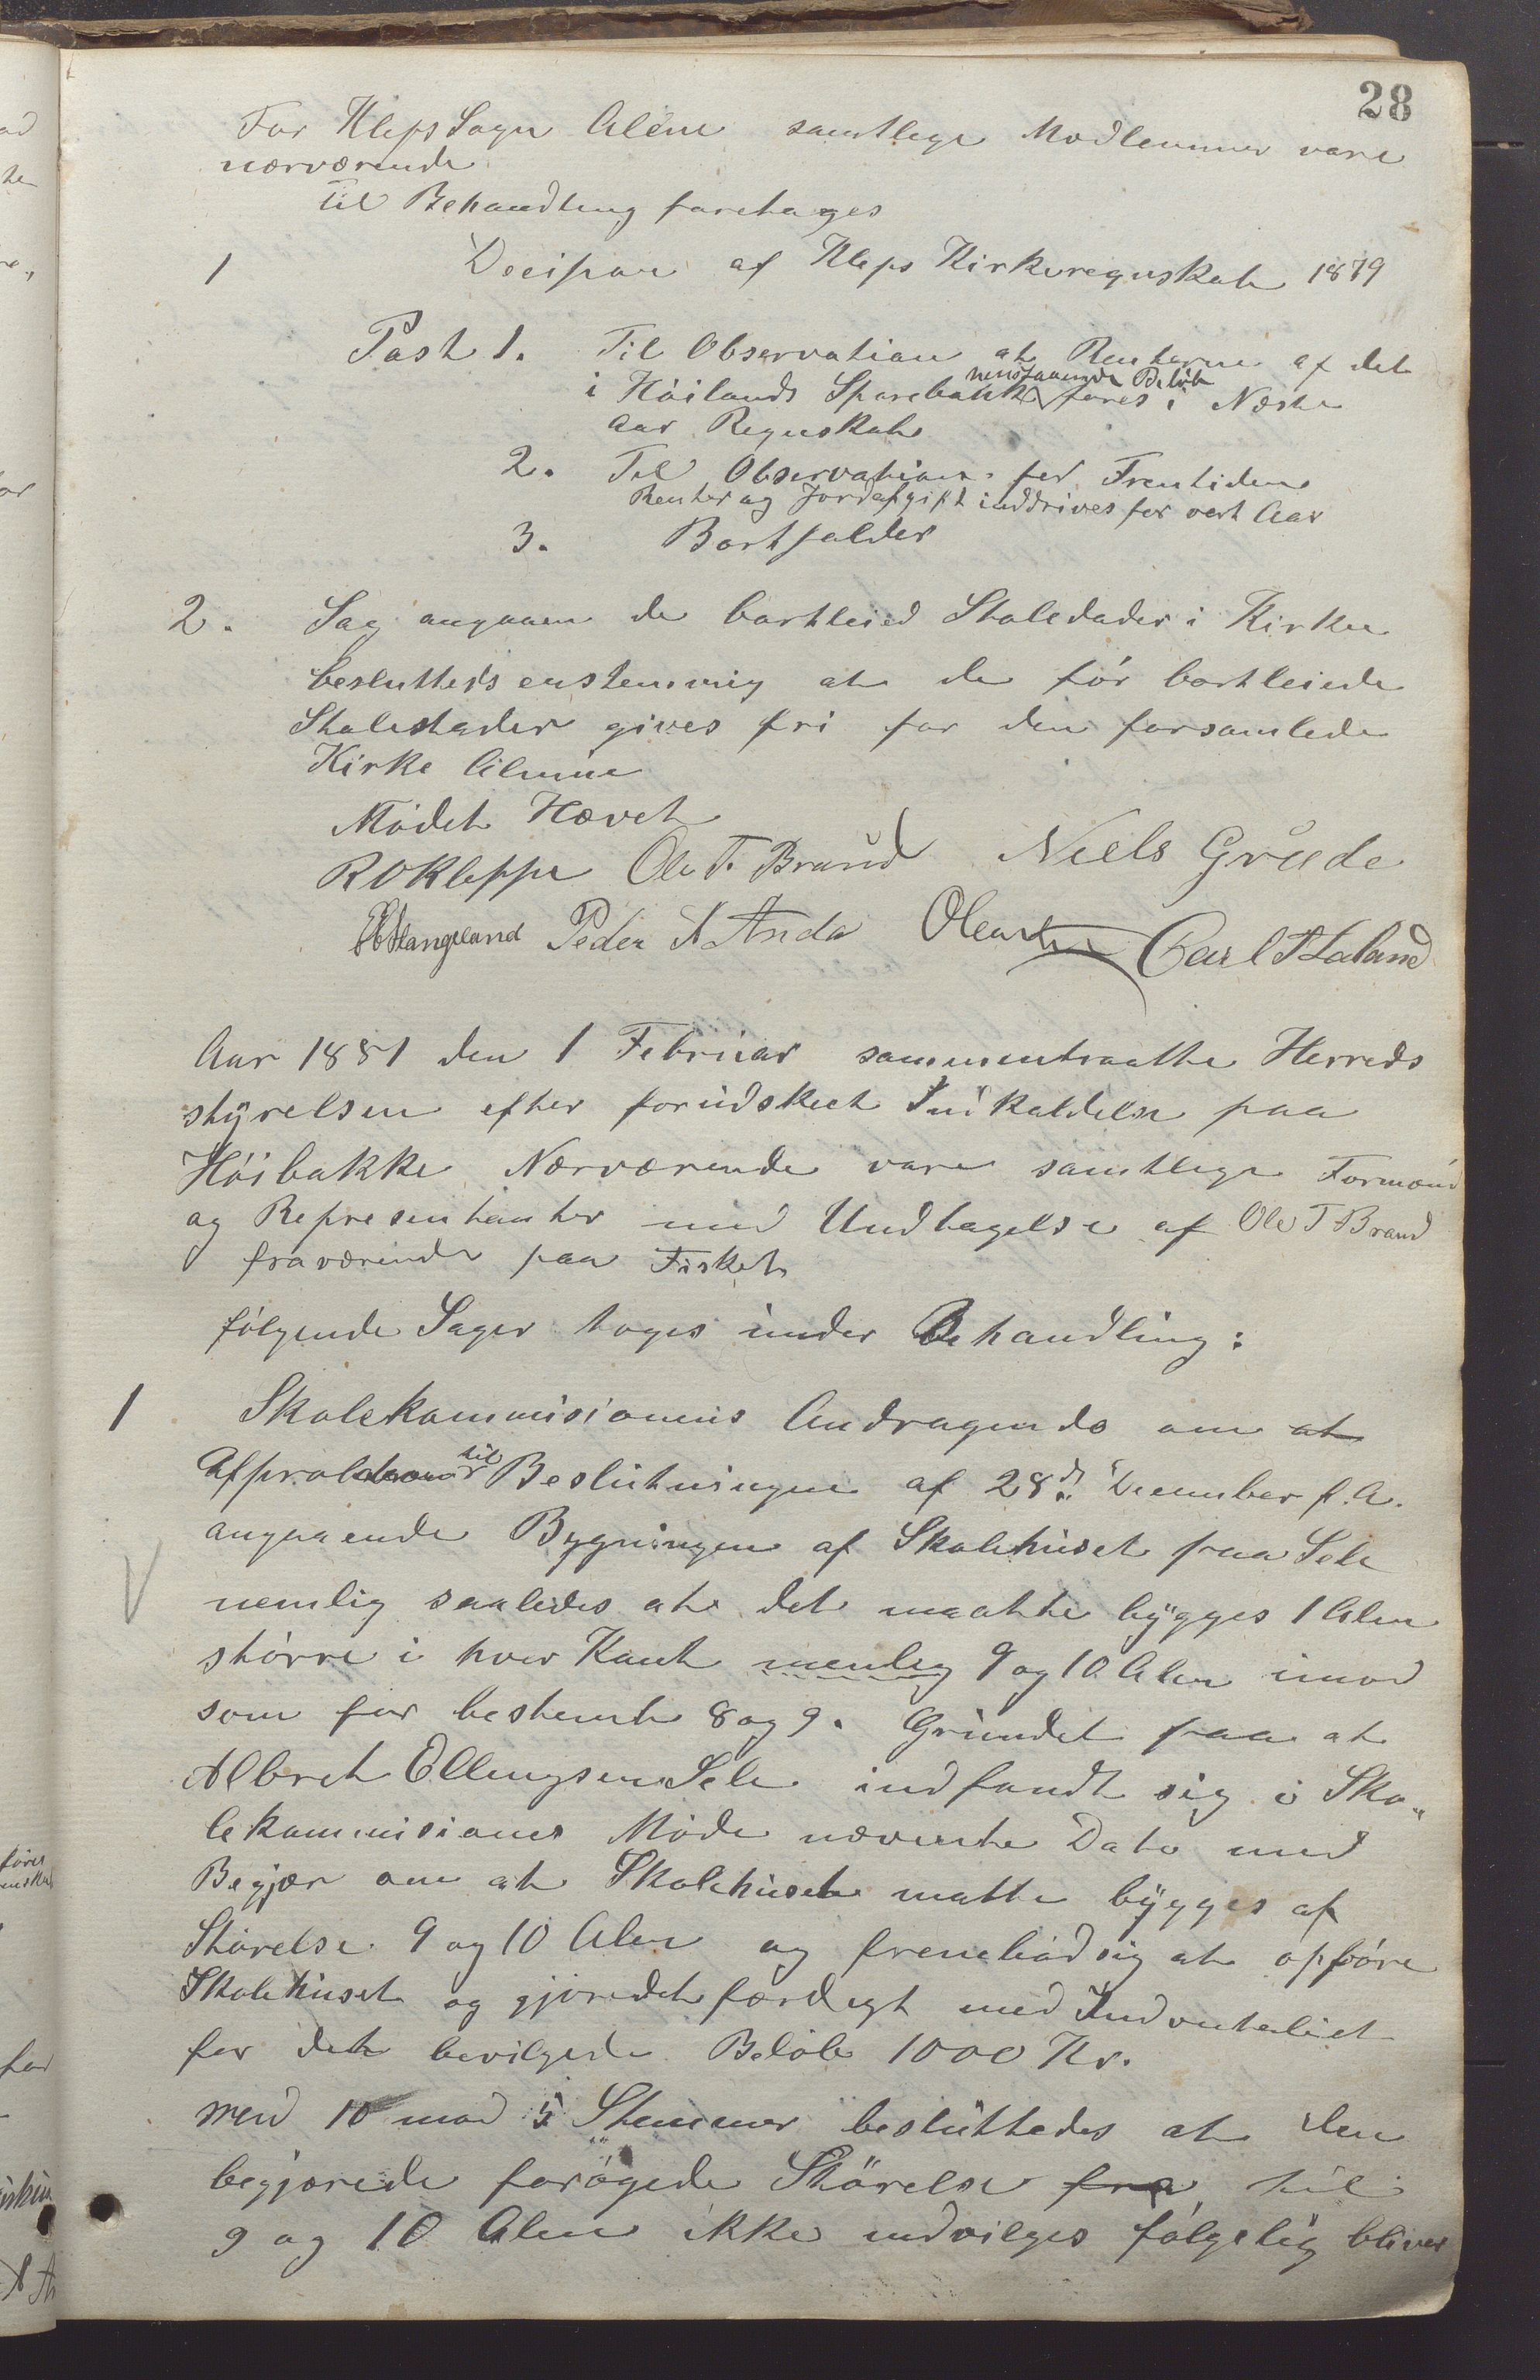 28
For Kleps Sogn Alene samtlege Medlemmer vare
nærværende
Til Behandling foretages
1 Decision af Kleps Kirkeregnskab 1879
Post 1. Til Observation at Renterne af det
i Höilands Sparebank henstaaende Beløb føres i Næste
Aar Regnskab
2. Til Observation for Fremtiden
Renter og Jordafgift inddrives for vert Aar
3. Bortfalder
2. Sag angaaen de bortleied Stolestader i Kirken
besluttets enstemmig at de för bortleiede
Stolestader gives fri for den forsamlede
Kirke Almue
Mödet Hævet
R O Kleppe Ole T. Braud Niels Grude
Peder A Anda Carl A Laland
Aar 1881 den 1 Februar sammentraatte Herreds
styrelsen efter forudskeet Indkaldelse paa
Höibakke Nærværende vare samtlege Formænd
og Representanter med Undtagelse af Ole T Braud
fraværende paa Fisket
fölgende Sager toges under Behandling:
1 Skolekommisionens Andragende om at
til Beslutningen af 28de December f.A.
angaaende Bygningen af Skolehuset paa Sele
nemlig saaledes at det maatte bygges 1 Alen
större i hver Kant nemlig 9 og 10 Alen imod
som før bestemt 8 og 9. Grundet paa at
Albret Ellingsen Sele indfandt sig i Sko„
lekommisions Möde nævente Dato med
Begjær om at Skolehuset matte bygges af
Störelse 9 og 10 Alen og fremböd sig at opföre
Skolehuset og gjöredet færdegt med Indventariet
for det bevilgede Belöb 1000 Kr.
med 10 mod 5 Stemmer besluttedes at den
begjærede forögede Störelse fra til
9 og 10 Alen ikke indvilges fölgelig bliver